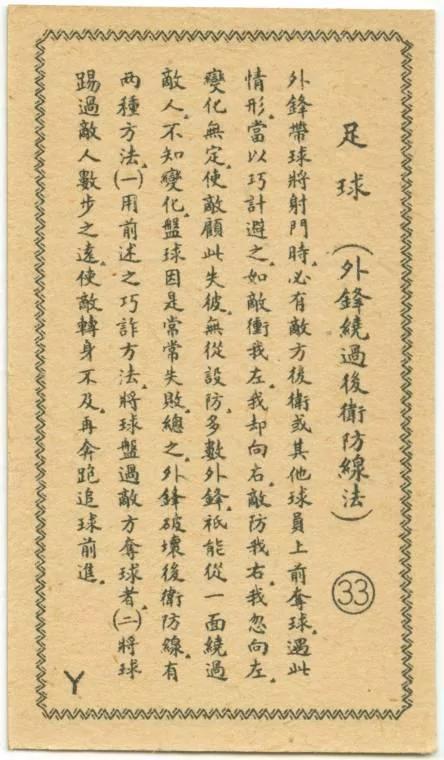 足球(外鋒繞過後衛防線法)
㉝
外鋒帶球將射門時。必有敵方後衛或其他球員上前奪球。遇此
情形。當以巧計避之。如敵衝我左。我却向右。敵防我右。我忽向左。
變化無定。使敵顧此失彼。無從設防。多數外鋒。祇能從一面繞過
敵人。不知變化。盤球因是常常失敗。總之。外鋒破壞後衛防線。有
兩種方法。(一)用前述之巧詐方法。將球盤過敵方奪球者。(二)將球
踢過敵人數步之遠。使敵轉身不及。再奔跑追球前進。
Y